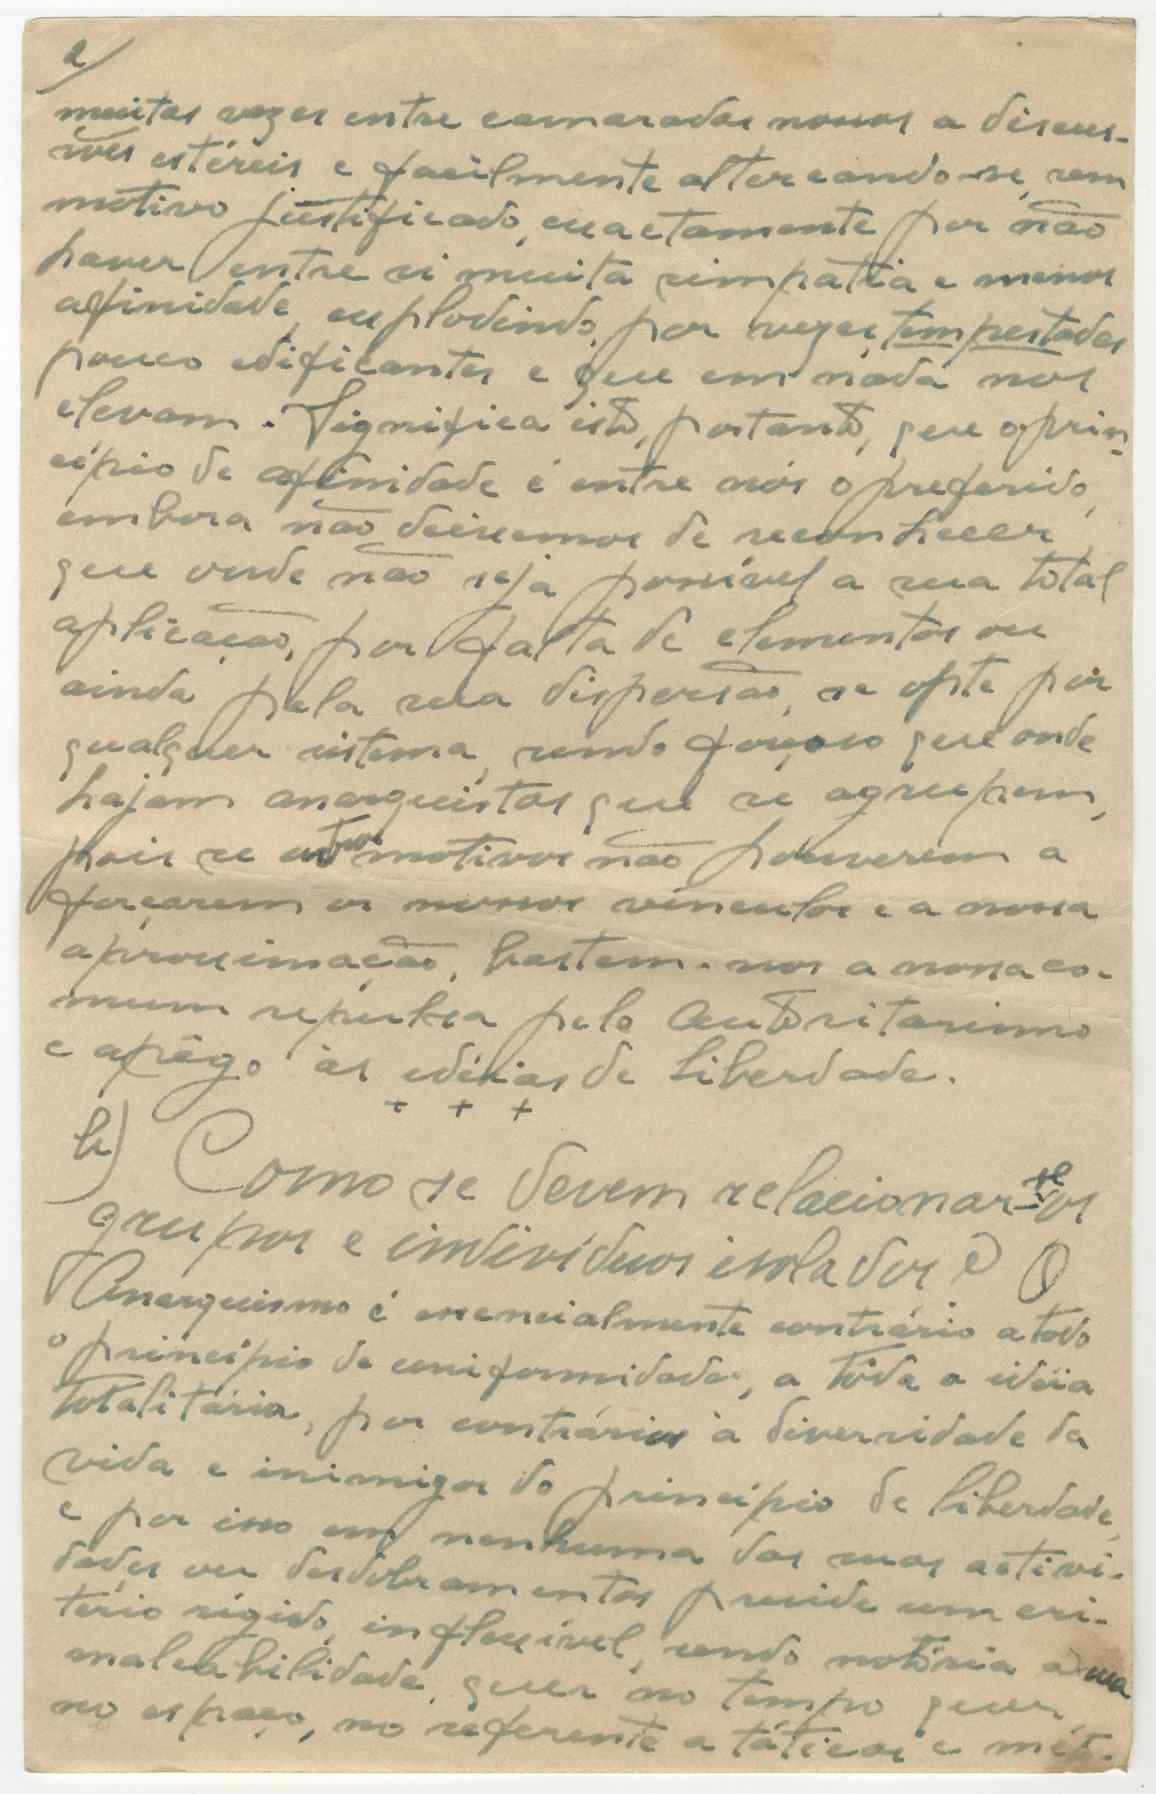 2/
muitas vezes entre camaradas nossos a discus-
sões estéreis e facilmente altercando-se, sem
motivo justificado, exactamente por não
haver entre si muita simpatia e menos
afinidade, explodindo, por vezes, tempestades
pouco edificantes e que em nada nos
elevam. Significa isto, portanto, que o prin-
cípio de afinidade é entre nós o preferido,
embora não deixemos de reconhecer
que onde não seja possível a sua total
aplicação, por falta de elementos ou
ainda pela sua dispersão, se opte por
qualquer sistema, sendo forçoso que onde
hajam anarquistas que se agrupem,
pois se outros motivos não houverem a
forçarem os nossos vínculos e a nossa
aproximação, bastem-nos a nossa co-
mum repulsa pelo autoritarismo
e apêgo às idéias de liberdade.
+ + +
b) Como se devem relacionar-se os
grupos e indivíduos isolados? O
Anarquismo é essencialmente contrário a todo
o princípio de uniformidade, a tôda a idéia
totalitária, por contrários à diversidade da
vida e inimigos do princípio de liberdade,
e por isso em nenhuma das suas activi-
dades ou desdobramentos preside um cri-
tério rígido, inflexível, sendo notória a sua
maleabilidade, quer no tempo quer
no espaço, no referente a táticas e méto-